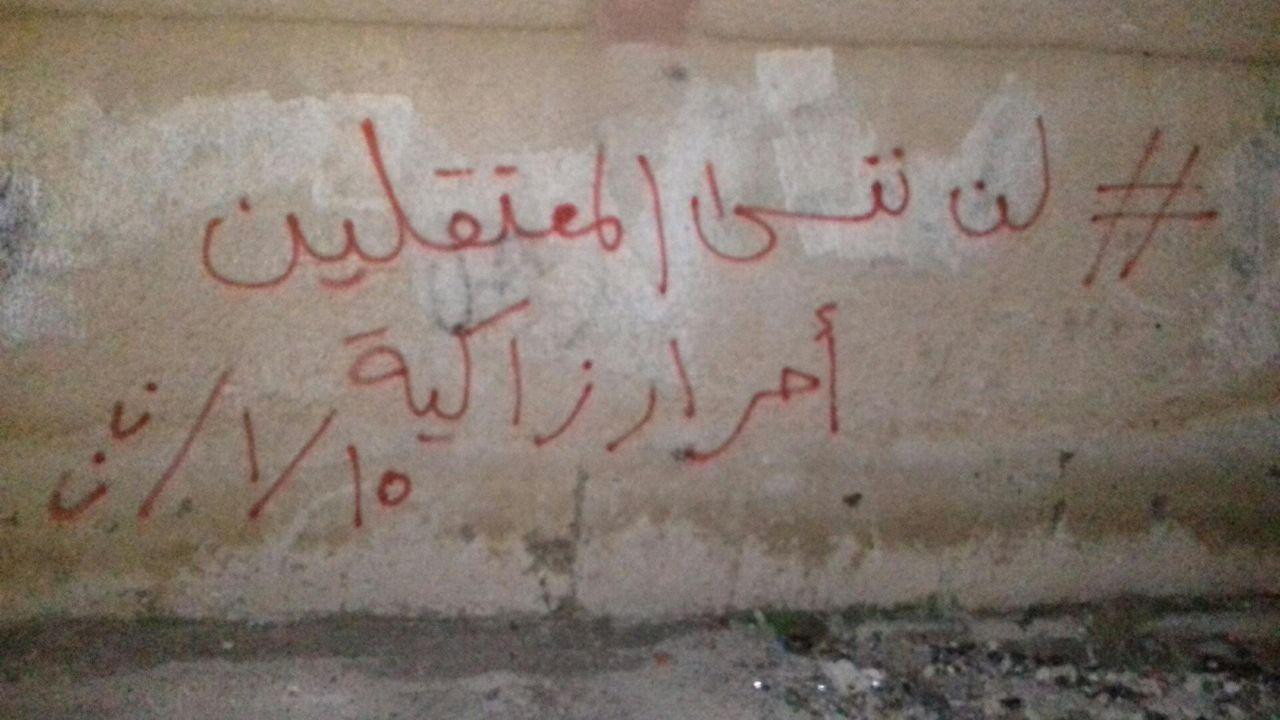 # لن ننسى المعتقلين
أحرار زاكية
١٥/١/